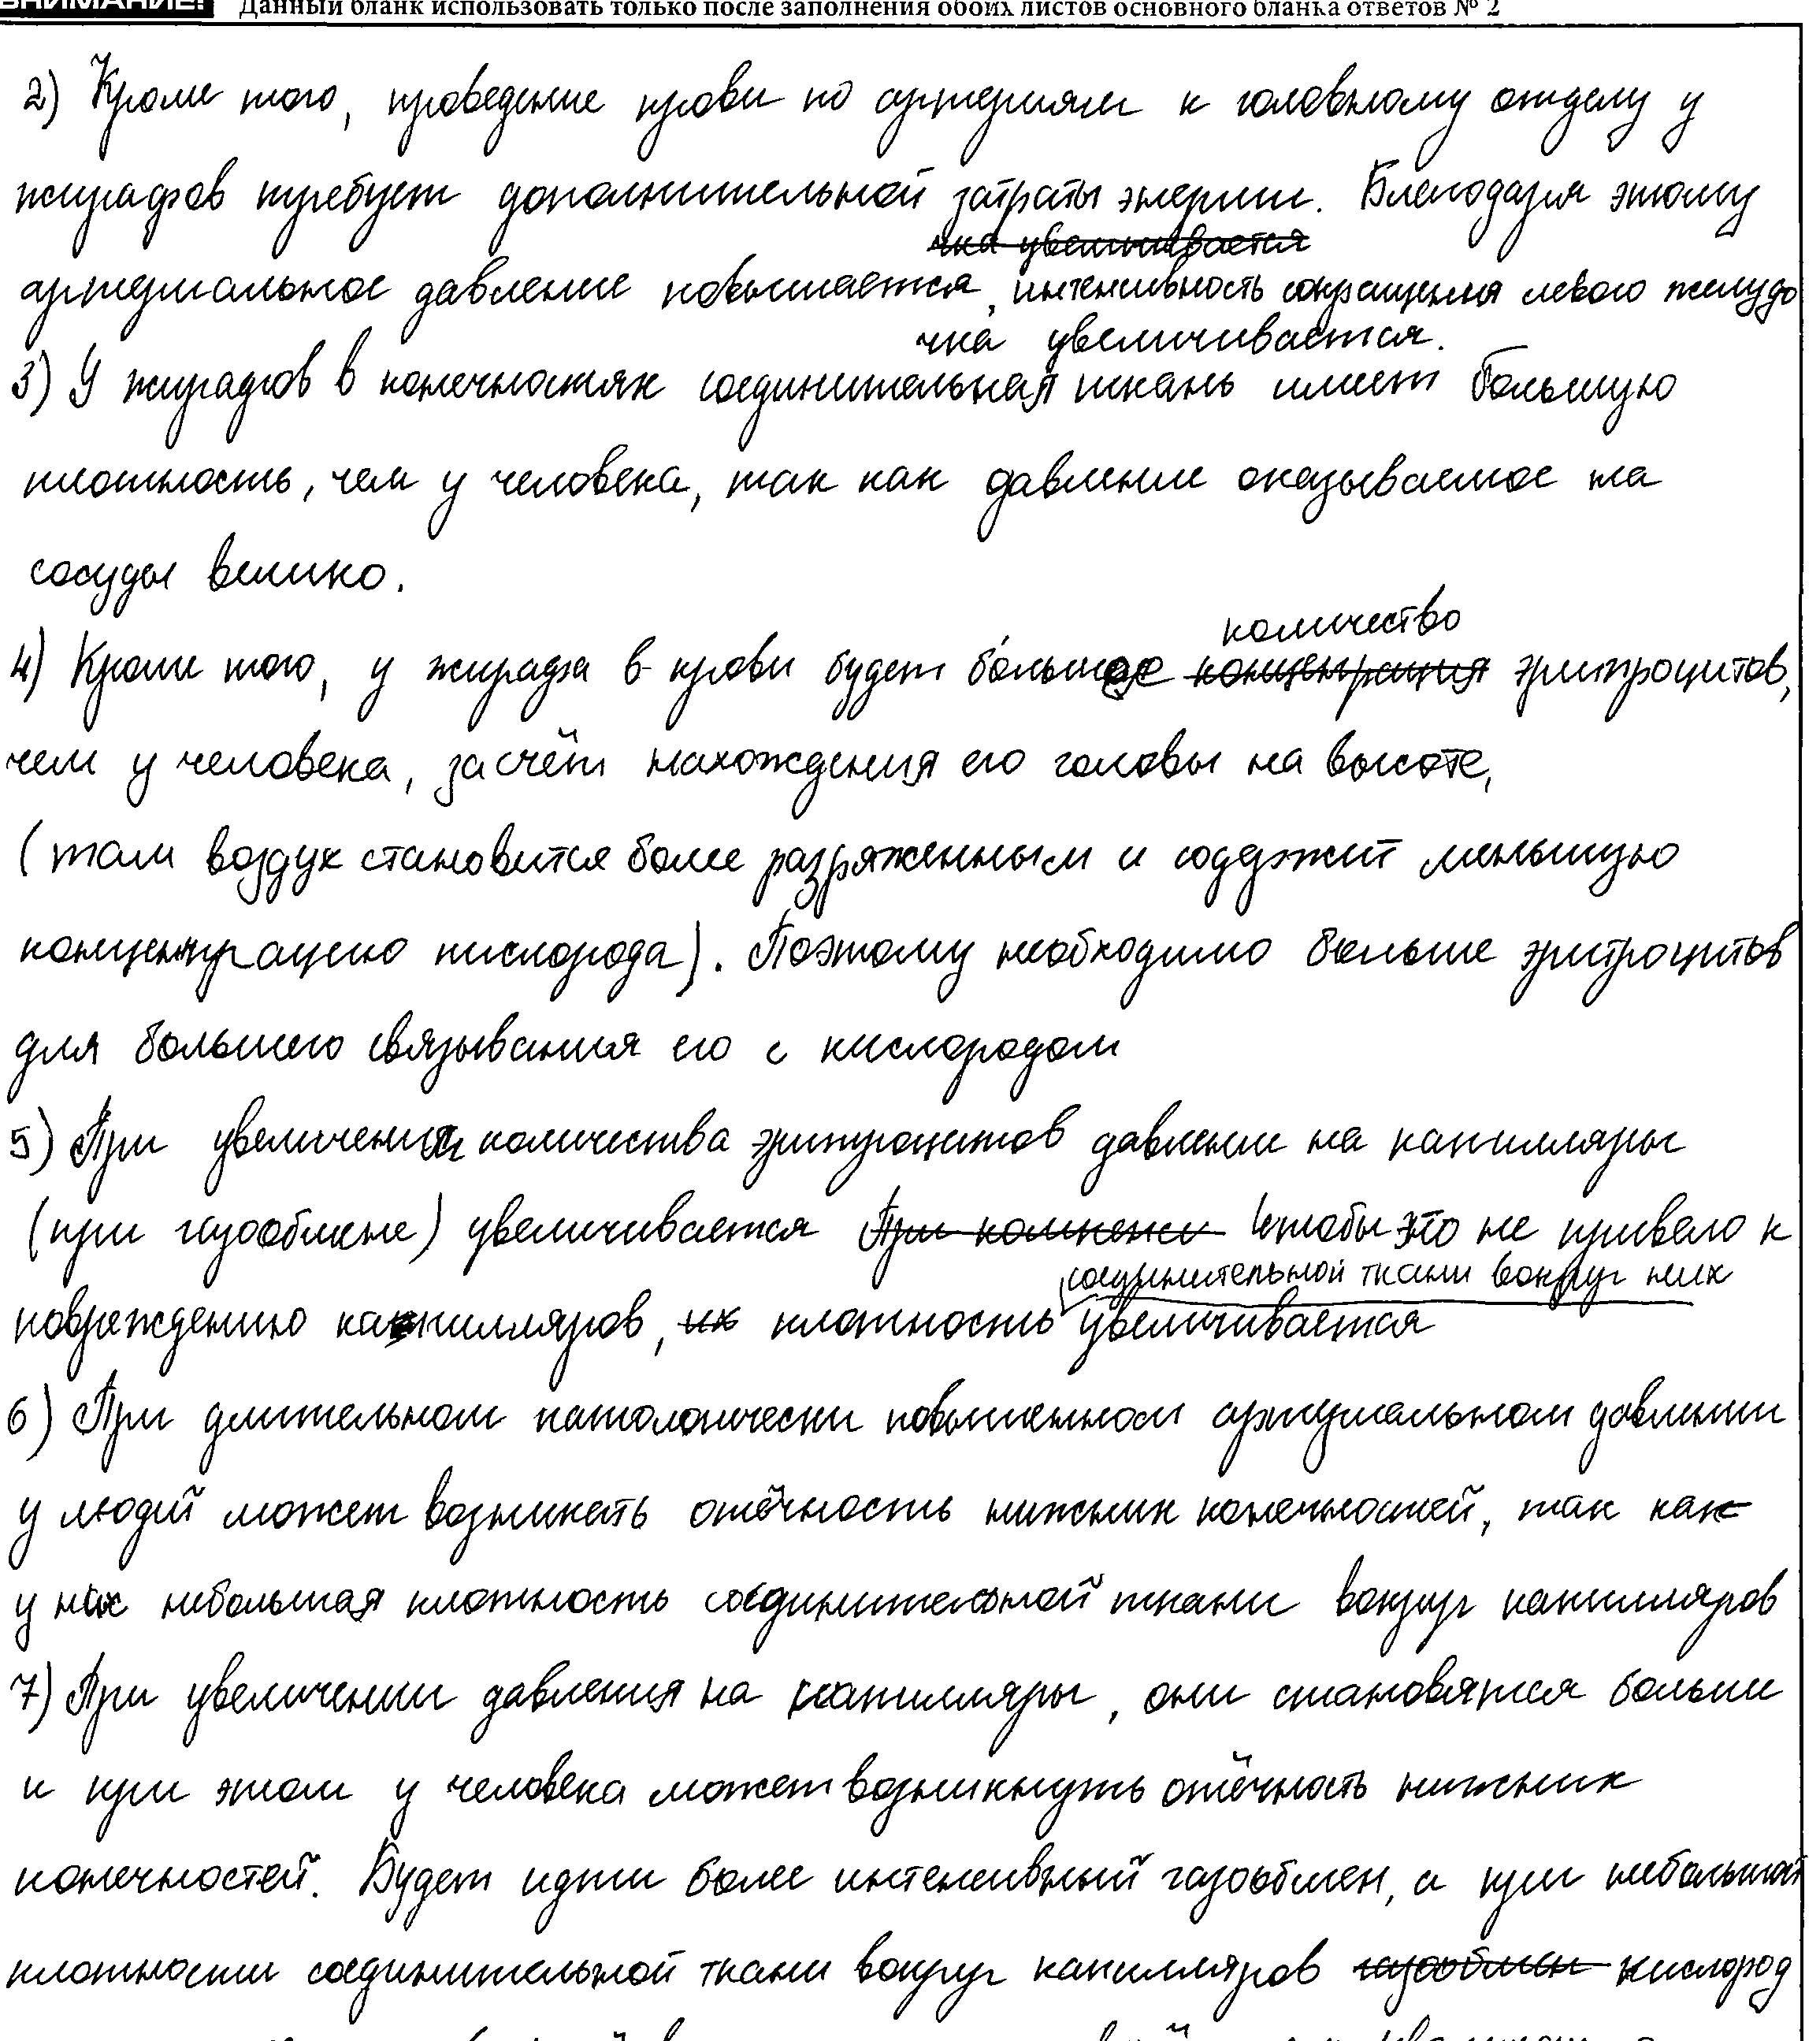 ВНИМАНИЕ! Данный бланк использовать только после заполнения обоих листов основного бланка ответов № 2
2) Кроме того, проведение крови по артериям к головному отделу у
жирафов требует дополнительной затраты энергии. Благодаря этому
чка увеличивается
артериальное давление повышается, интенсивность сокращения левого желудо
чка увеличивается.
3) У жирафов в конечностях соединительная ткань имеет большую
плотность, чем у человека, так как давление оказываемое на
сосуды велико.
количество
4) Кроме того, у жирафа в крови будет бо́льшее концентрация эритроцитов,
чем у человека, за счёт нахождения его головы на высоте,
(там воздух становится более разряженным и содержит меньшую
концентрацию кислорода). Поэтому необходимо больше эритроцитов
для большего связывания его с кислородом
5) При увеличении количества эритроцитов давление на капилляры
(при газообмене) увеличивается При Чтобы это не привело к
соединительной ткани вокруг них
повреждению капилляров, их плотность увеличивается
6) При длительном патологически повышенном артериальном давлении
у людей может возникать отёчность нижних конечностей, так как
у них небольшая плотность соединительной ткани вокруг капилляров
7) При увеличении давления на капилляры, они становятся больше
и при этом у человека может возникнуть отёчность нижних
конечностей. Будет идти более интенсивный газообмен, а при небольшой
плотности соединительной ткани вокруг капилляров газообмен кислород